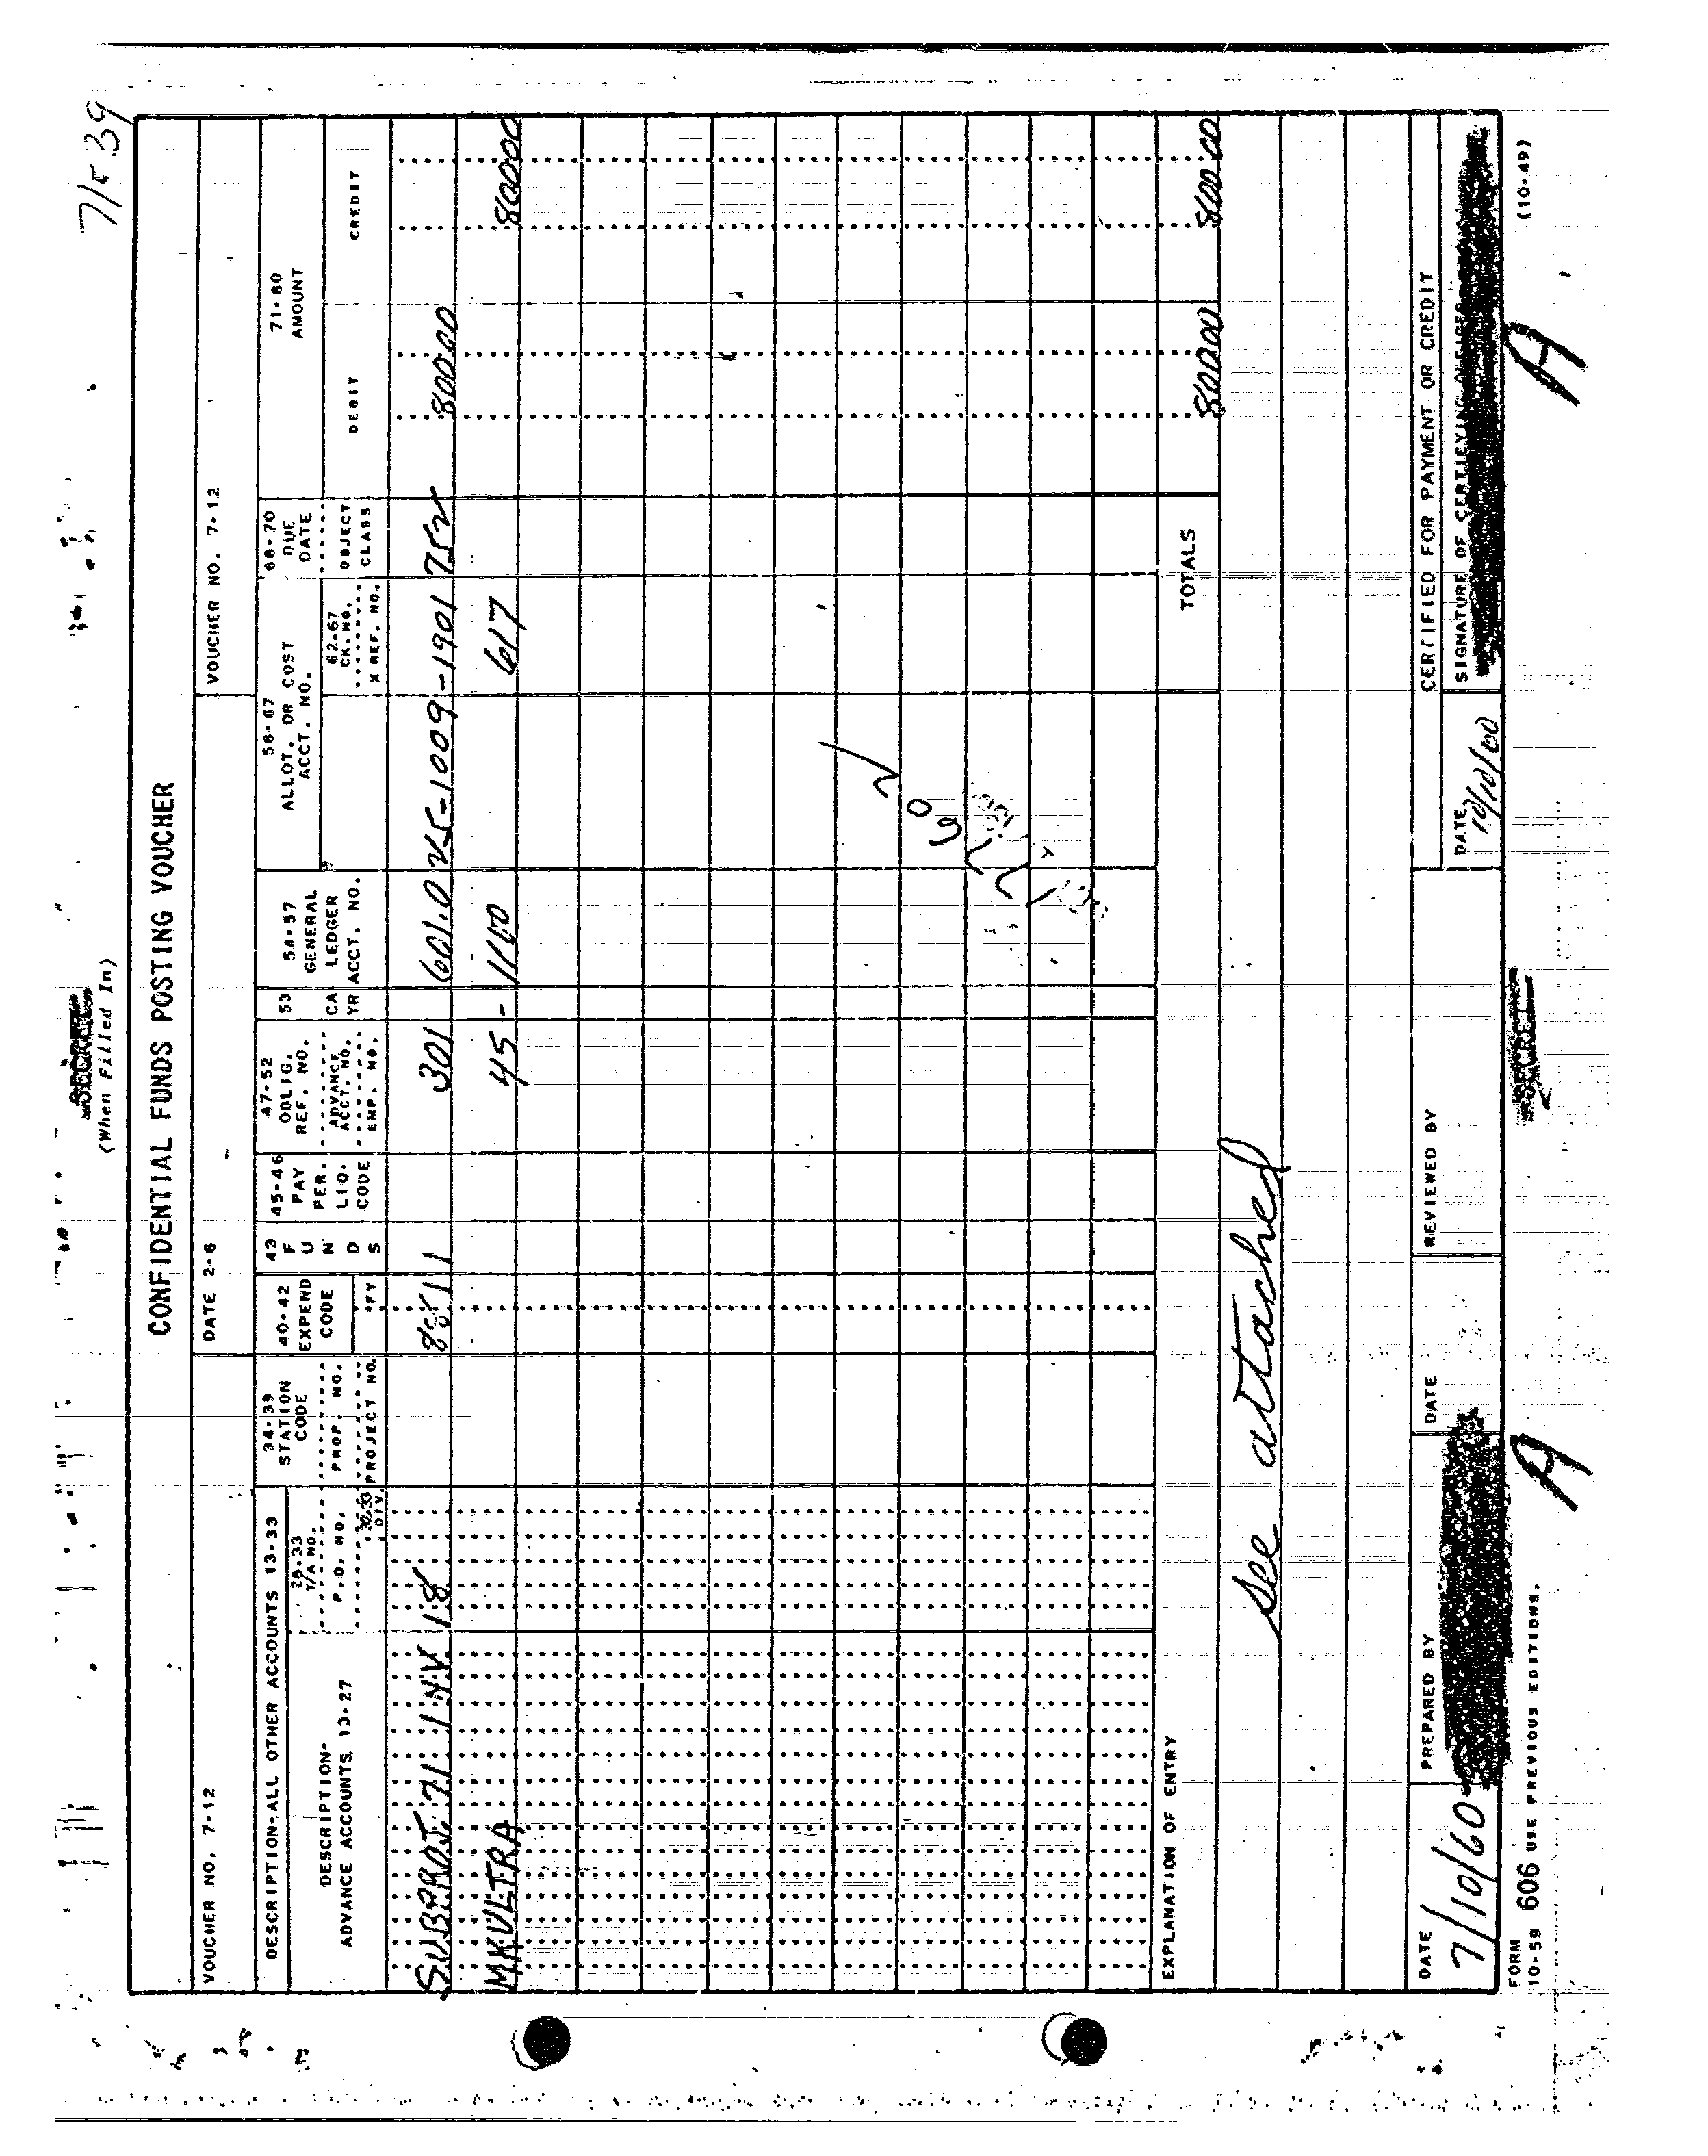 7/5 39
SECRET
(When Filled In)
CONFIDENTIAL FUNDS POSTING VOUCHER
VOUCHER NO. 7-12
DATE 2-6
VOUCHER NO. 7-12
DESCRIPTION-ALL OTHER ACCOUNTS 13-33
DESCRIPTION-
ADVANCE ACCOUNTS 13-27
28-33
T/A NO.
P.O. NO.
32-33
DIV.
34-39
STATION
CODE
PROP. NO.
PROJECT NO.
40-42
EXPEND
CODE
FY
43
F
U
N
D
S
45-46
PAY
PER.
LIQ.
CODE
47-52
OBLIG.
REF. NO.
ADVANCE
ACCT. NO.
EMP. NO.
53
CA
YR
54-57
GENERAL
LEDGER
ACCT. NO.
58-67
ALLOT. OR COST
ACCT. NO.
62-67
CK. NO.
X REF. NO.
68-70
DUE
DATE
OBJECT
CLASS
71-80
AMOUNT
DEBIT
CREDIT
SUBPROJ. 71 INV 18 811 301 601.0 25-1009-1901 752 800.00
MKULTRA 45- 1100 617 800.00
TOTALS 800.00 800.00
EXPLANATION OF ENTRY
See attached
CERTIFIED FOR PAYMENT OR CREDIT
DATE
7/10/60
PREPARED BY
DATE
REVIEWED BY
DATE
10/10/60
SIGNATURE OF CERTIFYING OFFICER
FORM
10-59 606 USE PREVIOUS EDITIONS.
A
SECRET
A
(10-49)